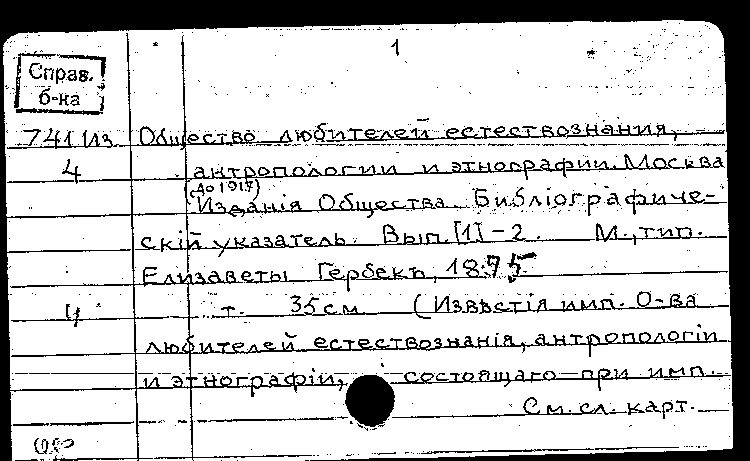 1
Справ.
б-ка
741 из Общество любителей естествознания,
4 антропологии и этнографии. Москва
(до 1917)
Изданія Общества. Библіографиче-
скій указатель. Вып. [1] - 2. М., тип.
Елизаветы Гербекъ, 1875
т. 35 см (Извѣстія имп. О-ва
любителей естествознанія, антропологіи
и этнографіи, состоящаго при имп.
См. сл. карт.